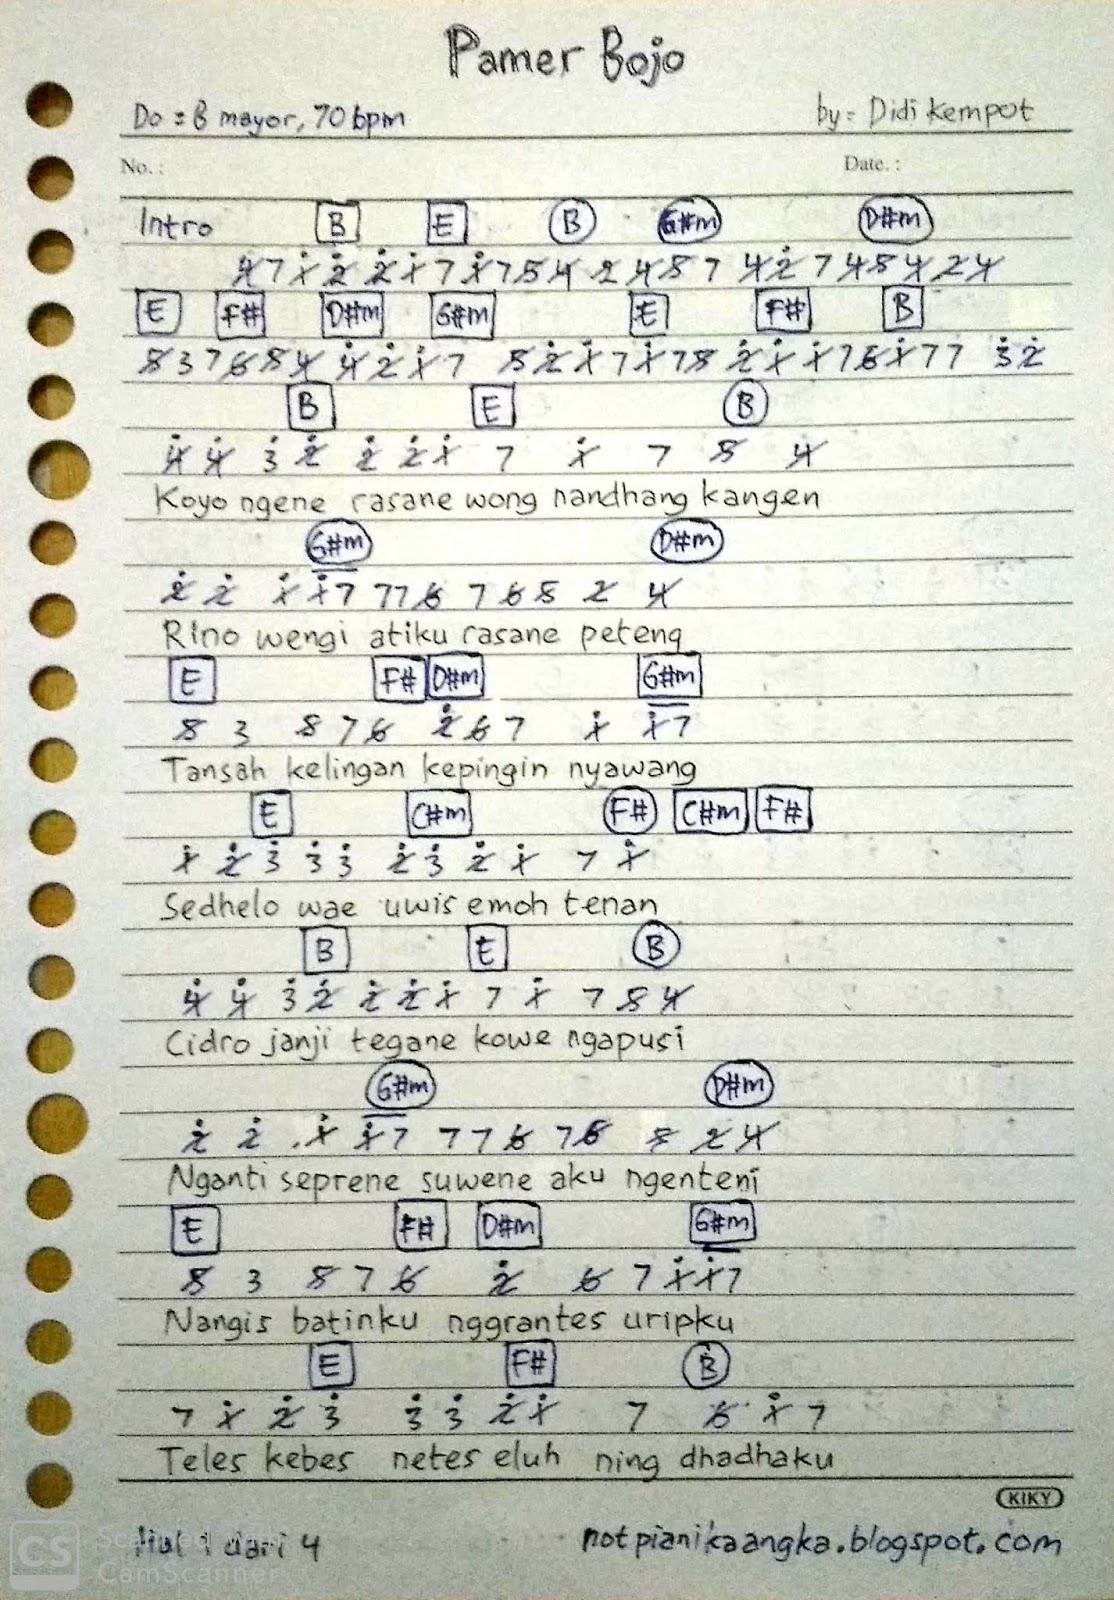 Pamer Bojo
Do = B mayor, 70 bpm by = Didi Kempot
No. : Date. :
Intro B E B G#m D#m
4 7 1̇ 2̇ 2̇ 1̇ 7 1̇ 7 5 4 2 4 5 7 4 2̇ 7 4 5 4 2 4
E F# D#m G#m E F# B
5 3 7 6 5 4 4̇ 2̇ 1̇ 7 5 2̇ 1̇ 7 1̇ 7 5 2̇ 1̇ 1̇ 7 6 1̇ 7 7 3̇ 2̇
B E B
4̇ 4̇ 3̇ 2̇ 2̇ 2̇ 1̇ 7 1̇ 7 5 4
Koyo ngene rasane wong nandhang kangen
G#m D#m
2̇ 2̇ 1̇ 1̇ 7 7 7 6 7 6 5 2 4
Rino wengi atiku rasane peteng
E F# D#m G#m
5 3 5 7 6 2̇ 6 7 1̇ 1̇ 7
Tansah kelingan kepingin nyawang
E C#m F# C#m F#
1̇ 2̇ 3̇ 3̇ 3̇ 2̇ 3̇ 2̇ 1̇ 7 1̇
Sedhelo wae uwis emoh tenan
B E B
4̇ 4̇ 3̇ 2̇ 2̇ 2̇ 1̇ 7 1̇ 7 5 4
Cidro janji tegane kowe ngapusi
G#m D#m
2̇ 2̇ 1̇ 1̇ 7 7 7 6 7 6 5 2 4
Nganti seprene suwene aku ngenteni
E F# D#m G#m
5 3 5 7 6 2̇ 6 7 1̇ 1̇ 7
Nangis batinku nggrantes uripku
E F# B
7 1̇ 2̇ 3̇ 3̇ 3̇ 2̇ 1̇ 7 6 1̇ 7
Teles kebes netes eluh ning dhadhaku
KIKY
Hal 1 dari 4 notpianikaangka.blogspot.com
CS Scanned with
CamScanner